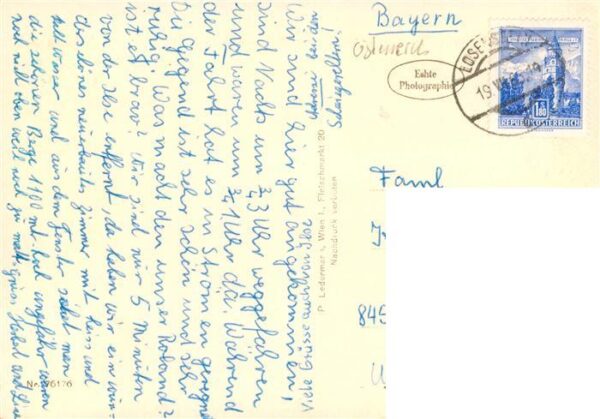 Bayern
Österreich
Echte
Photographie
EDSEN
19.VII.
1.80
REPUBLIK ÖSTERREICH
Faml
845
Wir sind hier gut angekommen,
sind Nachts um ¾3 Uhr weggefahren
und waren um ¾1 Uhr da. Während
der Fahrt hat es in Strömen geregnet
Die Gegend ist sehr schön und sehr
ruhig. Was macht den unser Roland?
ist er brav? Wir sind nur 5 Minuten
von der Ilse entfernt, da haben wir ein wun-
des neuerbautes Zimmer mit heiss und
kalt Wasser und aus dem Fenster sieht man
die schönen Berge 1100 mt. hoch ungefähr waren
noch nicht oben weil noch zu matt. Gruss
Viele Grüsse auch von Ilse
P. Ledermann, Wien I., Fleischmarkt 20
Nachdruck verboten
Nr. 76176